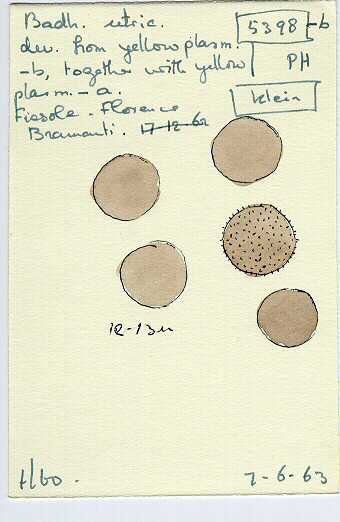 Badh. utric.
dev. from yellow plasm.
-b, together with yellow
plasm. - a.
Fiesole - Florence
Bramanti. 17-12-62
5398 -b
PH
Klein
12-13 µ
H/60.
7-6-63